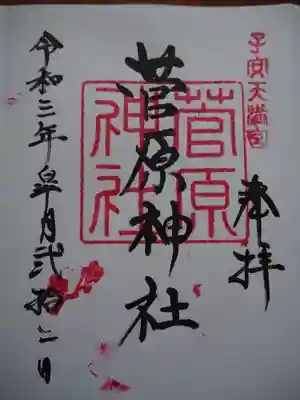 子安天満宮
奉拝
菅原神社
菅原
神社
令和三年皐月弐拾一日